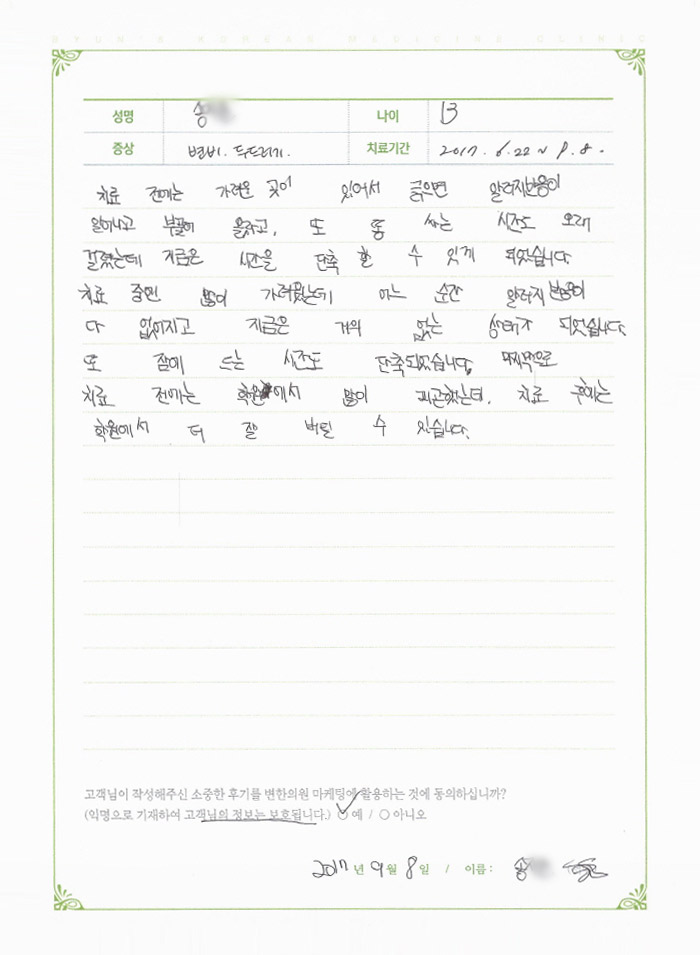 BYUN'S KOREAN MEDICINE CLINIC
성명 송 나이 13
증상 변비. 두드러기. 치료기간 2017. 6.22 ~ 9. 8.
치료 전에는 가려운 곳이 있어서 긁으면 알러지반응이
일어나고 부풀어 올랐고, 또 똥 싸는 시간도 오래
걸렸는데 지금은 시간을 단축 할 수 있게 되었습니다
치료 중엔 많이 가려웠는데 어느 순간 알러지 반응이
다 없어지고 지금은 거의 없는 상태가 되었습니다.
또 잠에 드는 시간도 단축되었습니다. 마지막으로
치료 전에는 학원에서 많이 피곤했는데, 치료 후에는
학원에서 더 잘 버틸 수 있습니다.
고객님이 작성해주신 소중한 후기를 변한의원 마케팅에 활용하는 것에 동의하십니까?
(익명으로 기재하여 고객님의 정보는 보호됩니다.) ○ 예 / ○ 아니오
2017 년 9 월 8 일 / 이름 : 송